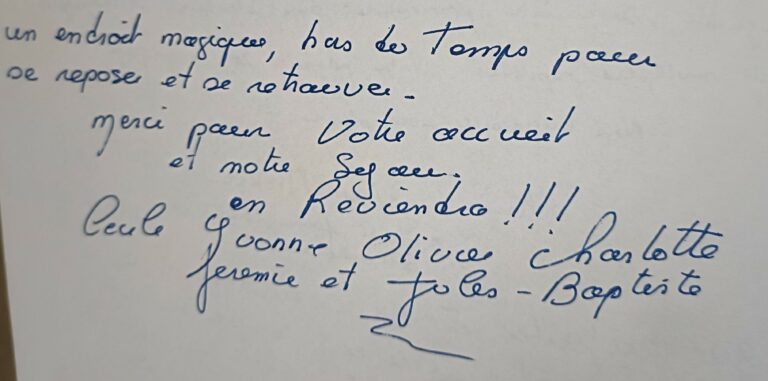 un endroit magique, has de Temps pour
se reposer et se retrouver.
merci pour Votre accueil
et notre Sejour.
en Reviendra !!!
Yvonne Olivier Charlotte
Jeremie et Jules-Baptiste